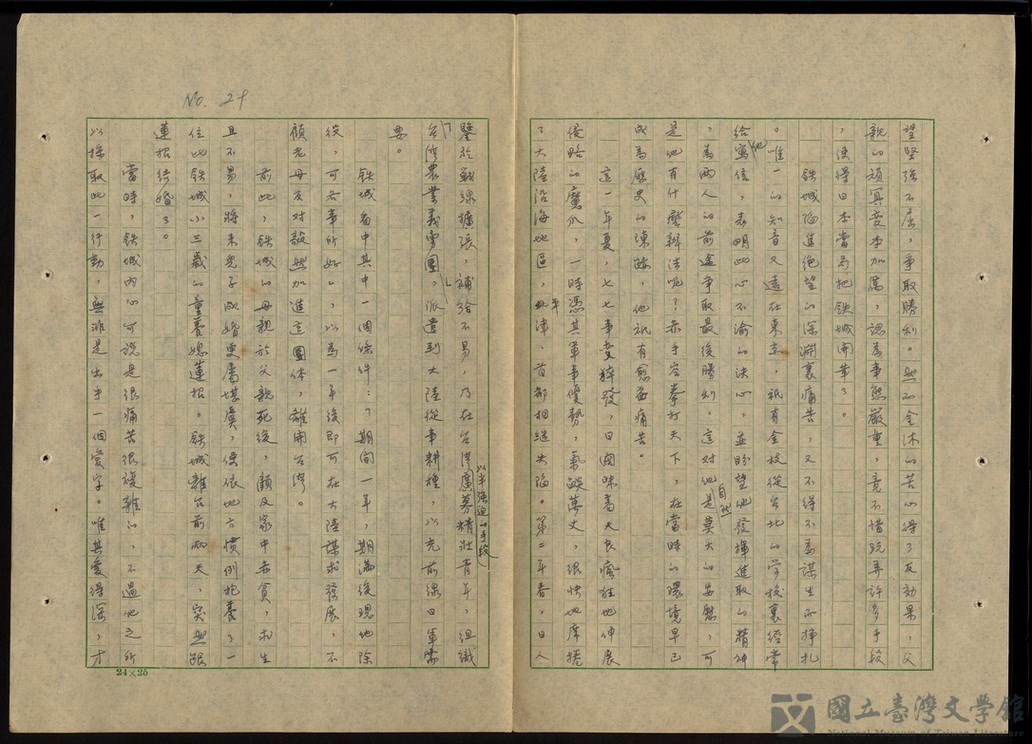 No. 29
望堅強不屈，爭取勝利。然而金木的苦心得了反効果，父
親的頑冥变本加厲，認為事態嚴重，竟不惜玩弄許多手段
，使得日本當局把鉄城開革了。
鉄城陷進絕望的深淵裏痛苦，又不得不為謀生而掙扎
。唯一的知音又遠在東京，祇有金枝從台北的学校裏經常
給他寫信，表明此心不渝的決心，並盼望他發揮進取的精神
，為兩人的前途爭取最後勝利。這對他自然是莫大的安慰，可
是他有什麼辦法呢？赤手空拳打天下，在當時的環境早已
成為歷史的陳跡，他祇有愈益痛苦。
這一年夏，七七事变猝發，日閥昧着天良瘋狂地伸展
侵略的魔爪，一時憑其軍事優勢，氣燄萬丈，很快地席捲
了大陸沿海地區，平津、首都相継失陷。第二年春，日人
鑒於戰線擴張，補給不易，乃在台灣以半強迫的手段廣募精壯青年，組織
「台灣農業義勇團」，派遣到大陸從事耕種，以充前線日軍需
要。
鉄城看中其中一個條件：「期間一年，期滿後現地除
役，可各事所好」，以為一年後即可在大陸謀求發展，不
顧老母反対毅然加進這團体，離開台灣。
前此，鉄城的母親於父親死後，顧及家中赤貧，求生
且不易，將來兒子成婚更屬堪虞，便依地方慣例抱養了一
位比鉄城小三歲的童養媳蓮根。鉄城離台前兩天，突然跟
蓮根結婚了。
當時，鉄城內心可說是很痛苦很複雜的，不過他之所
以採取此一行動，無非是出于一個愛字。唯其愛得深，才
24×25
國立臺灣文学館
National Museum of Taiwan Literature